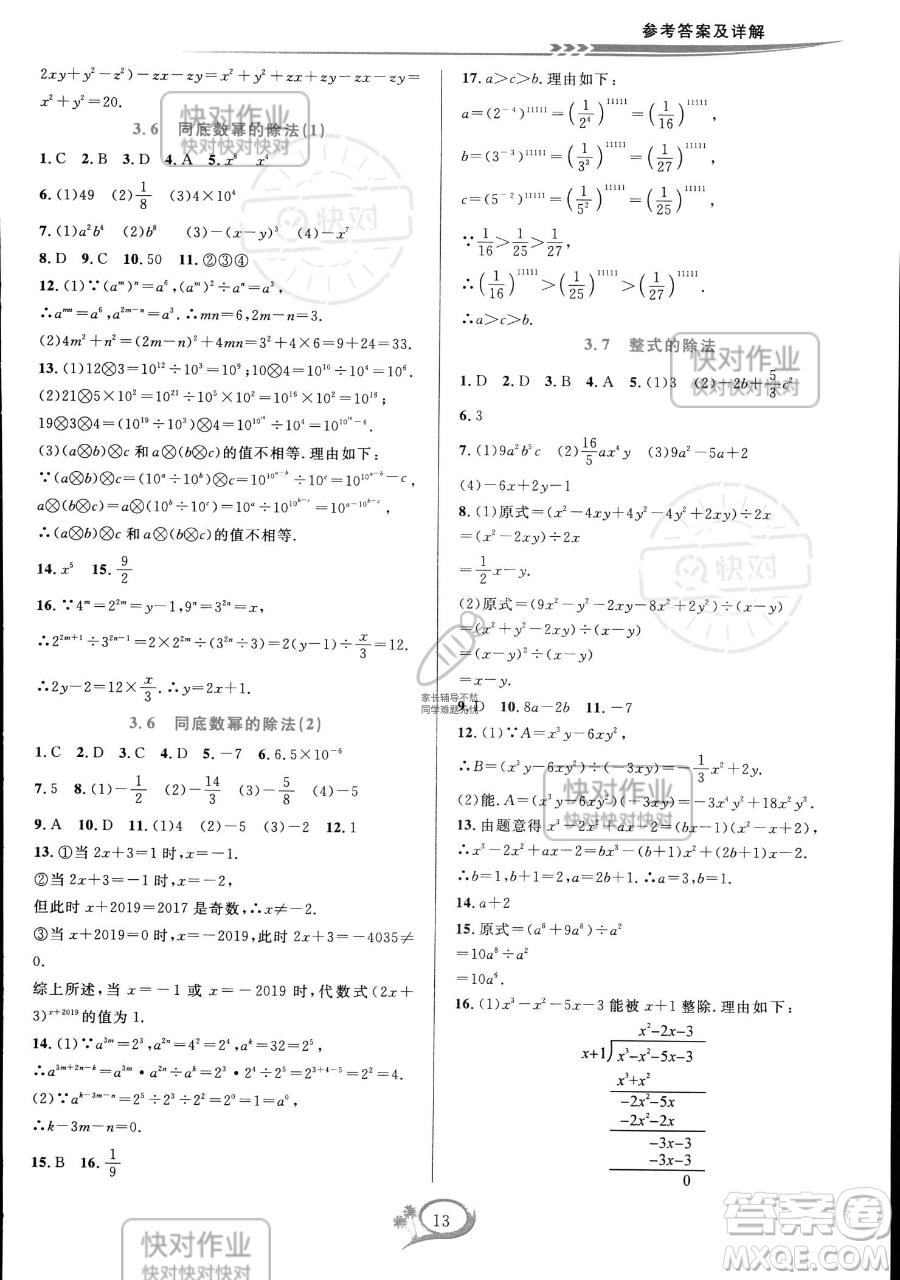 参考答案及详解
2xy+y²-z²)-zx-zy=x²+y²+zx+zy-zx-zy=
x²+y²=20.
3.6 同底数幂的除法(1)
1.C 2.B 3.D 4.A 5.x⁸ x⁴
6.(1)49 (2)1/8 (3)4×10⁴
7.(1)a²b⁴ (2)b⁸ (3)-(x-y)³ (4)-x⁷
8.D 9.C 10.50 11.②③④
12.(1)∵(a^m)^n=a⁶,(a^m)²÷a^n=a³,
∴a^(mn)=a⁶,a^(2m-n)=a³.∴mn=6,2m-n=3.
(2)4m²+n²=(2m-n)²+4mn=3²+4×6=9+24=33.
13.(1)12⊗3=10¹²÷10³=10⁹,10⊗4=10¹⁰÷10⁴=10⁶.
(2)21⊗5×10²=10²¹÷10⁵×10²=10¹⁶×10²=10¹⁸;
19⊗3⊗4=(10¹⁹÷10³)⊗4=10^(10¹⁶)÷10⁴=10^(10¹⁶-4).
(3)(a⊗b)⊗c和a⊗(b⊗c)的值不相等.理由如下:
∵(a⊗b)⊗c=(10^a÷10^b)⊗c=10^(10^(a-b))÷10^c=10^(10^(a-b)-c),
a⊗(b⊗c)=a⊗(10^b÷10^c)=10^a÷10^(10^(b-c))=10^(a-10^(b-c)),
∴(a⊗b)⊗c和a⊗(b⊗c)的值不相等.
14.x⁵ 15.9/2
16.∵4^m=2^(2m)=y-1,9^n=3^(2n)=x,
∴2^(2m+1)÷3^(2n-1)=2^(2m)×2÷(3^(2n)÷3)=2(y-1)÷x/3=12.
∴2y-2=12×x/3.∴y=2x+1.
3.6 同底数幂的除法(2)
1.C 2.D 3.C 4.D 5.-7 6.6.5×10⁻⁶
7.5 8.(1)-1/2 (2)-14/3 (3)-5/8 (4)-5
9.A 10.D 11.(1)4 (2)-5 (3)8 12.1
13.①当2x+3=1时,x=-1.
②当2x+3=-1时,x=-2,
但此时x+2019=2017是奇数,∴x≠-2.
③当x+2019=0时,x=-2019,此时2x+3=-4035≠
0.
综上所述,当x=-1或x=-2019时,代数式(2x+
3)^(x+2019)的值为1.
14.(1)∵a^(3m)=2³,a^(2n)=2⁴,a^k=2⁵,
∴a^(3m+2n-k)=a^(3m)·a^(2n)÷a^k=2³·2⁴÷2⁵=2^(3+4-5)=2²=4.
(2)∵a^(k-3m-n)=2⁵÷2³÷2²=2⁰=1=a⁰,
∴k-3m-n=0.
15.B 16.1/9
17.a>c>b.理由如下:
a=(2⁻⁴)¹¹¹¹¹=(1/2⁴)¹¹¹¹¹=(1/16)¹¹¹¹¹,
b=(3⁻³)¹¹¹¹¹=(1/3³)¹¹¹¹¹=(1/27)¹¹¹¹¹,
c=(5⁻²)¹¹¹¹¹=(1/5²)¹¹¹¹¹=(1/25)¹¹¹¹¹,
∵1/16>1/25>1/27,
∴(1/16)¹¹¹¹¹>(1/25)¹¹¹¹¹>(1/27)¹¹¹¹¹,
∴a>c>b.
3.7 整式的除法
1.D 2.D 3.B 4.A 5.(1)3 (2)-2b+5/3c²
6.3
7.(1)9a²b⁵c (2)16/5ax⁴y (3)9a²-5a-2
(4)-6x+2y-1
8.(1)原式=(x²-4xy+4y²-4y²+2xy)÷2x
=(x²-2xy)÷2x
=1/2x-y.
(2)原式=(9x²-y²-2xy-8x²+2y²)÷(x-y)
=(x²+y²-2xy)÷(x-y)
=(x-y)²÷(x-y)
=x-y.
9.D 10.8a-2b 11.-7
12.(1)∵A=x³y-6xy²,
∴B=(x³y-6xy²)÷(-3xy)=-1/3x²+2y.
(2)能.A=(x³y-6xy²)(-3xy)=-3x⁴y²+18x²y³.
13.由题意得x³-2x²+ax-2=(bx-1)(x²-x+2),
∴x³-2x²+ax-2=bx³-(b+1)x²+(2b+1)x-2.
∴b=1,a=2b+1.∴a=3,b=1.
14.a+2
15.原式=(a⁸+9a⁸)÷a²
=10a⁸÷a²
=10a⁶.
16.(1)x³-x²-5x-3能被x+1整除.理由如下:
x²-2x-3
x+1)x³-x²-5x-3
x³+x²
-2x²-5x
-2x²-2x
-3x-3
-3x-3
0
13
快对作业
快对快对快对
快对
家长辅导不愁
同学难题无忧
答案圈
MXQE.COM